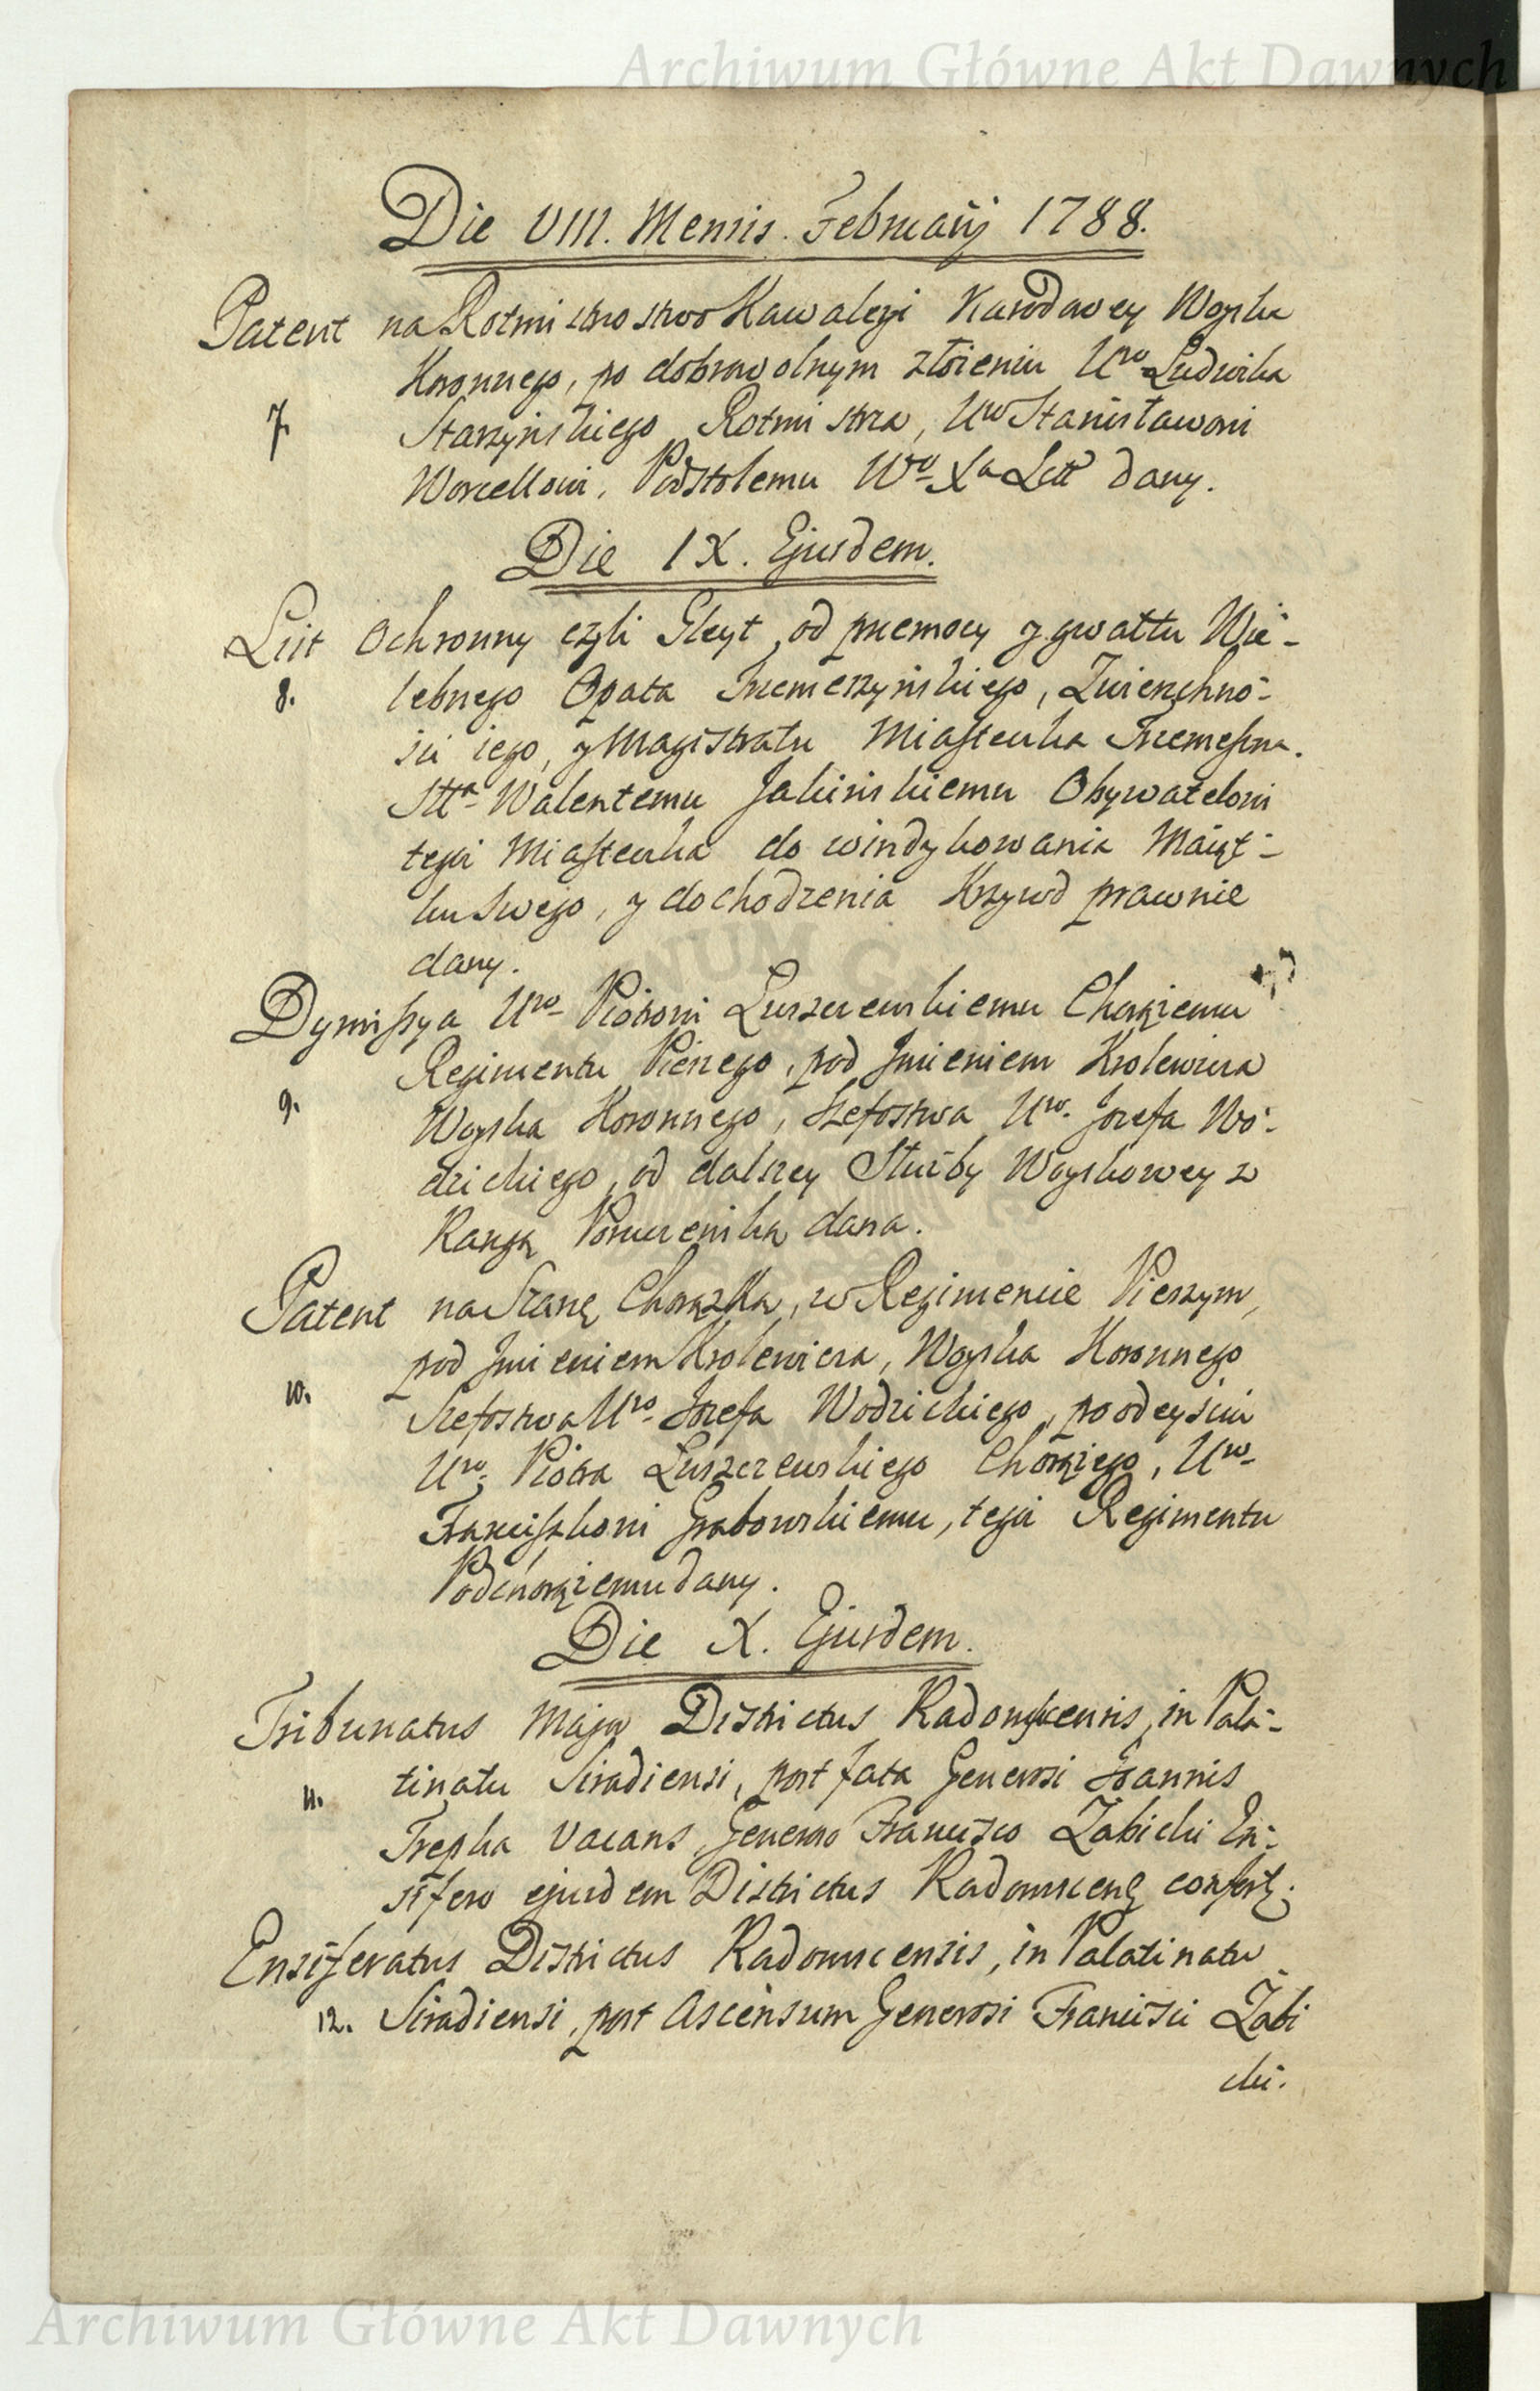 Archiwum Główne Akt Dawnych
Die VIII. Mensis. Februarij 1788.
Patent na Rotmistrzostwo Kawaleryi Narodowey Woyska
Koronnego, po dobrowolnym złożeniu Uro Ludwika
7. Starzyńskiego Rotmistrza, Uro Stanisławowi
Worcellowi, Podstolemu Wo Xa Litt dany.
Die IX. Ejusdem.
List Ochronny czyli Gleyt, od przemocy y gwałtu Wie-
8. lebnego Opata Trzemeszyńskiego, Zwierzchno-
ści iego, y Magistratu Miasteczka Trzemeszna.
Stta Walentemu Jakińskiemu Obywatelowi
tegoż Miasteczka do windykowania Maiąt-
ku Swego, y dochodzenia Krzywd prawnie
dany.
Dymissya Uro Piotrowi Łuszczewskiemu Chorążemu
Regimentu Pieszego, pod Jmieniem Krolewicza
9. Woyska Koronnego, Szefostwa Uro. Jozefa Wo-
dzickiego, od dalszey Służby Woyskowey z
Rangą Porucznika dana.
Patent na Szarżę Chorążka, w Regimencie Pieszym,
pod Jmieniem Krolewicza, Woyska Koronnego
10. Szefostwa Uro Jozefa Wodzickiego, po odeyściu
Uro. Piotra Łuszczewskiego Chorążego, Uro
Franciszkowi Grabowskiemu, tegoż Regimentu
Podchorążemu dany.
Die X. Ejusdem.
Tribunatus Major Districtus Radomscensis, in Pala-
11. tinatu Siradiensi, post fata Generosi Joannis
Trepka vacans, Generoso Francisco Zabicki En-
sifero ejusdem Districtus Radomscens confert:
Ensiferatus Districtus Radomscensis, in Palatinatu
12. Siradiensi, post Ascensum Generosi Francisci Zabi
cki.
Archiwum Główne Akt Dawnych